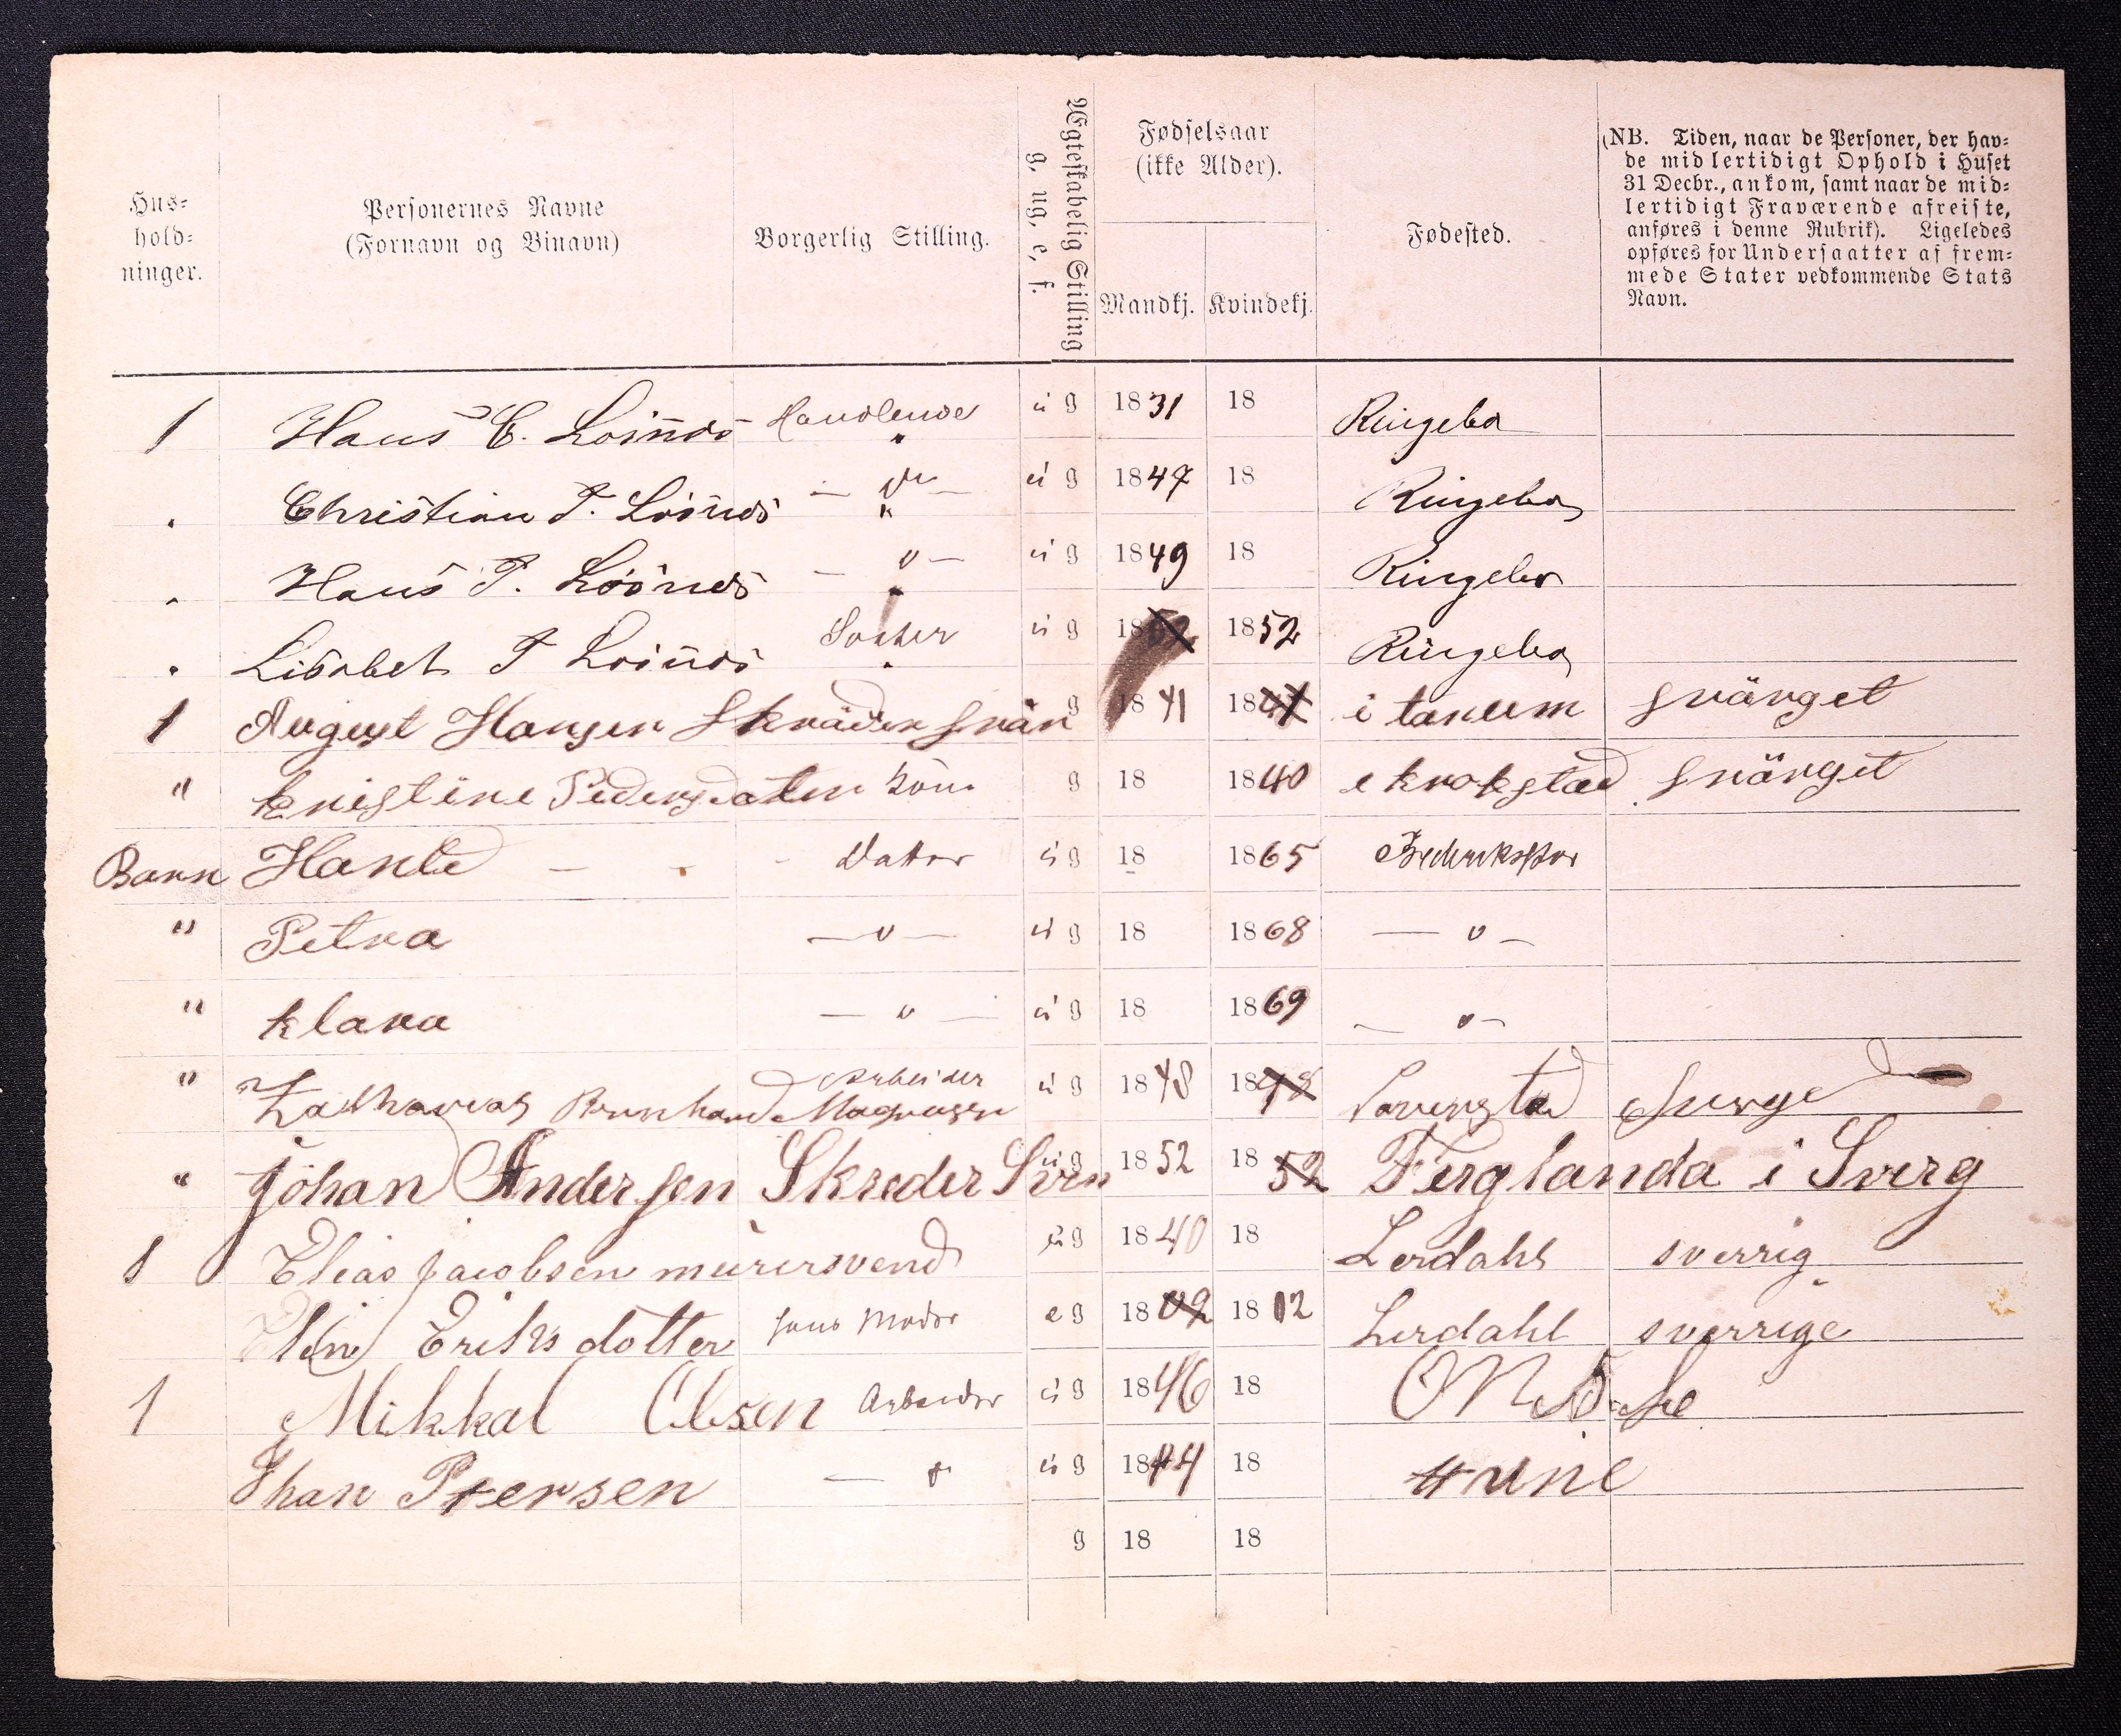 Hus-
hold-
ninger.
Personernes Navne
(Fornavn og Binavn)
Borgerlig Stilling.
Ægteskabelig Stilling
g, ug, e, f.
Fødselsaar
(ikke Alder).
Mandkj. Kvindekj.
Fødested.
(NB. Tiden, naar de Personer, der hav-
de midlertidigt Ophold i Huset
31 Decbr., ankom, samt naar de mid-
lertidigt Fraværende afreiste,
anføres i denne Rubrik). Ligeledes
opføres for Undersaatter af frem-
mede Stater vedkommende Stats
Navn.
1 Hans C. Handlende ug 1831 18 Ringebo
" Christian P. — " — ug 1847 18 Ringebo
" Hans P. — " — ug 1849 18 Ringebo
" Lisabet P Søster ug 1852 1852 Ringebo
1 August Hansen Skräder svän g 1841 1841 i tanum svärget
" kristine Pedersdatter kone g 18 1840 e krokstad svärget
Barn Hanle — - - Datter ug 18 1865
" Petra — " — ug 18 1868 — " —
" klara — " — ug 18 1869 — " —
" Arbeider Magnusen ug 1848 1848
" Johan Andersen Skreder Sven ug 1852 1852 Ferglanda i Sverg
1 Elias Jacobsen mürersvend ug 1840 18 Lerdahl sverrig
Elin Eriks dotter hans Moder eg 1802 1802 Lerdahl sverrige
1 Mikkal Olsen Arbeider ug 1846 18
Jhan Ptersen — " ug 1844 18
g 18 18